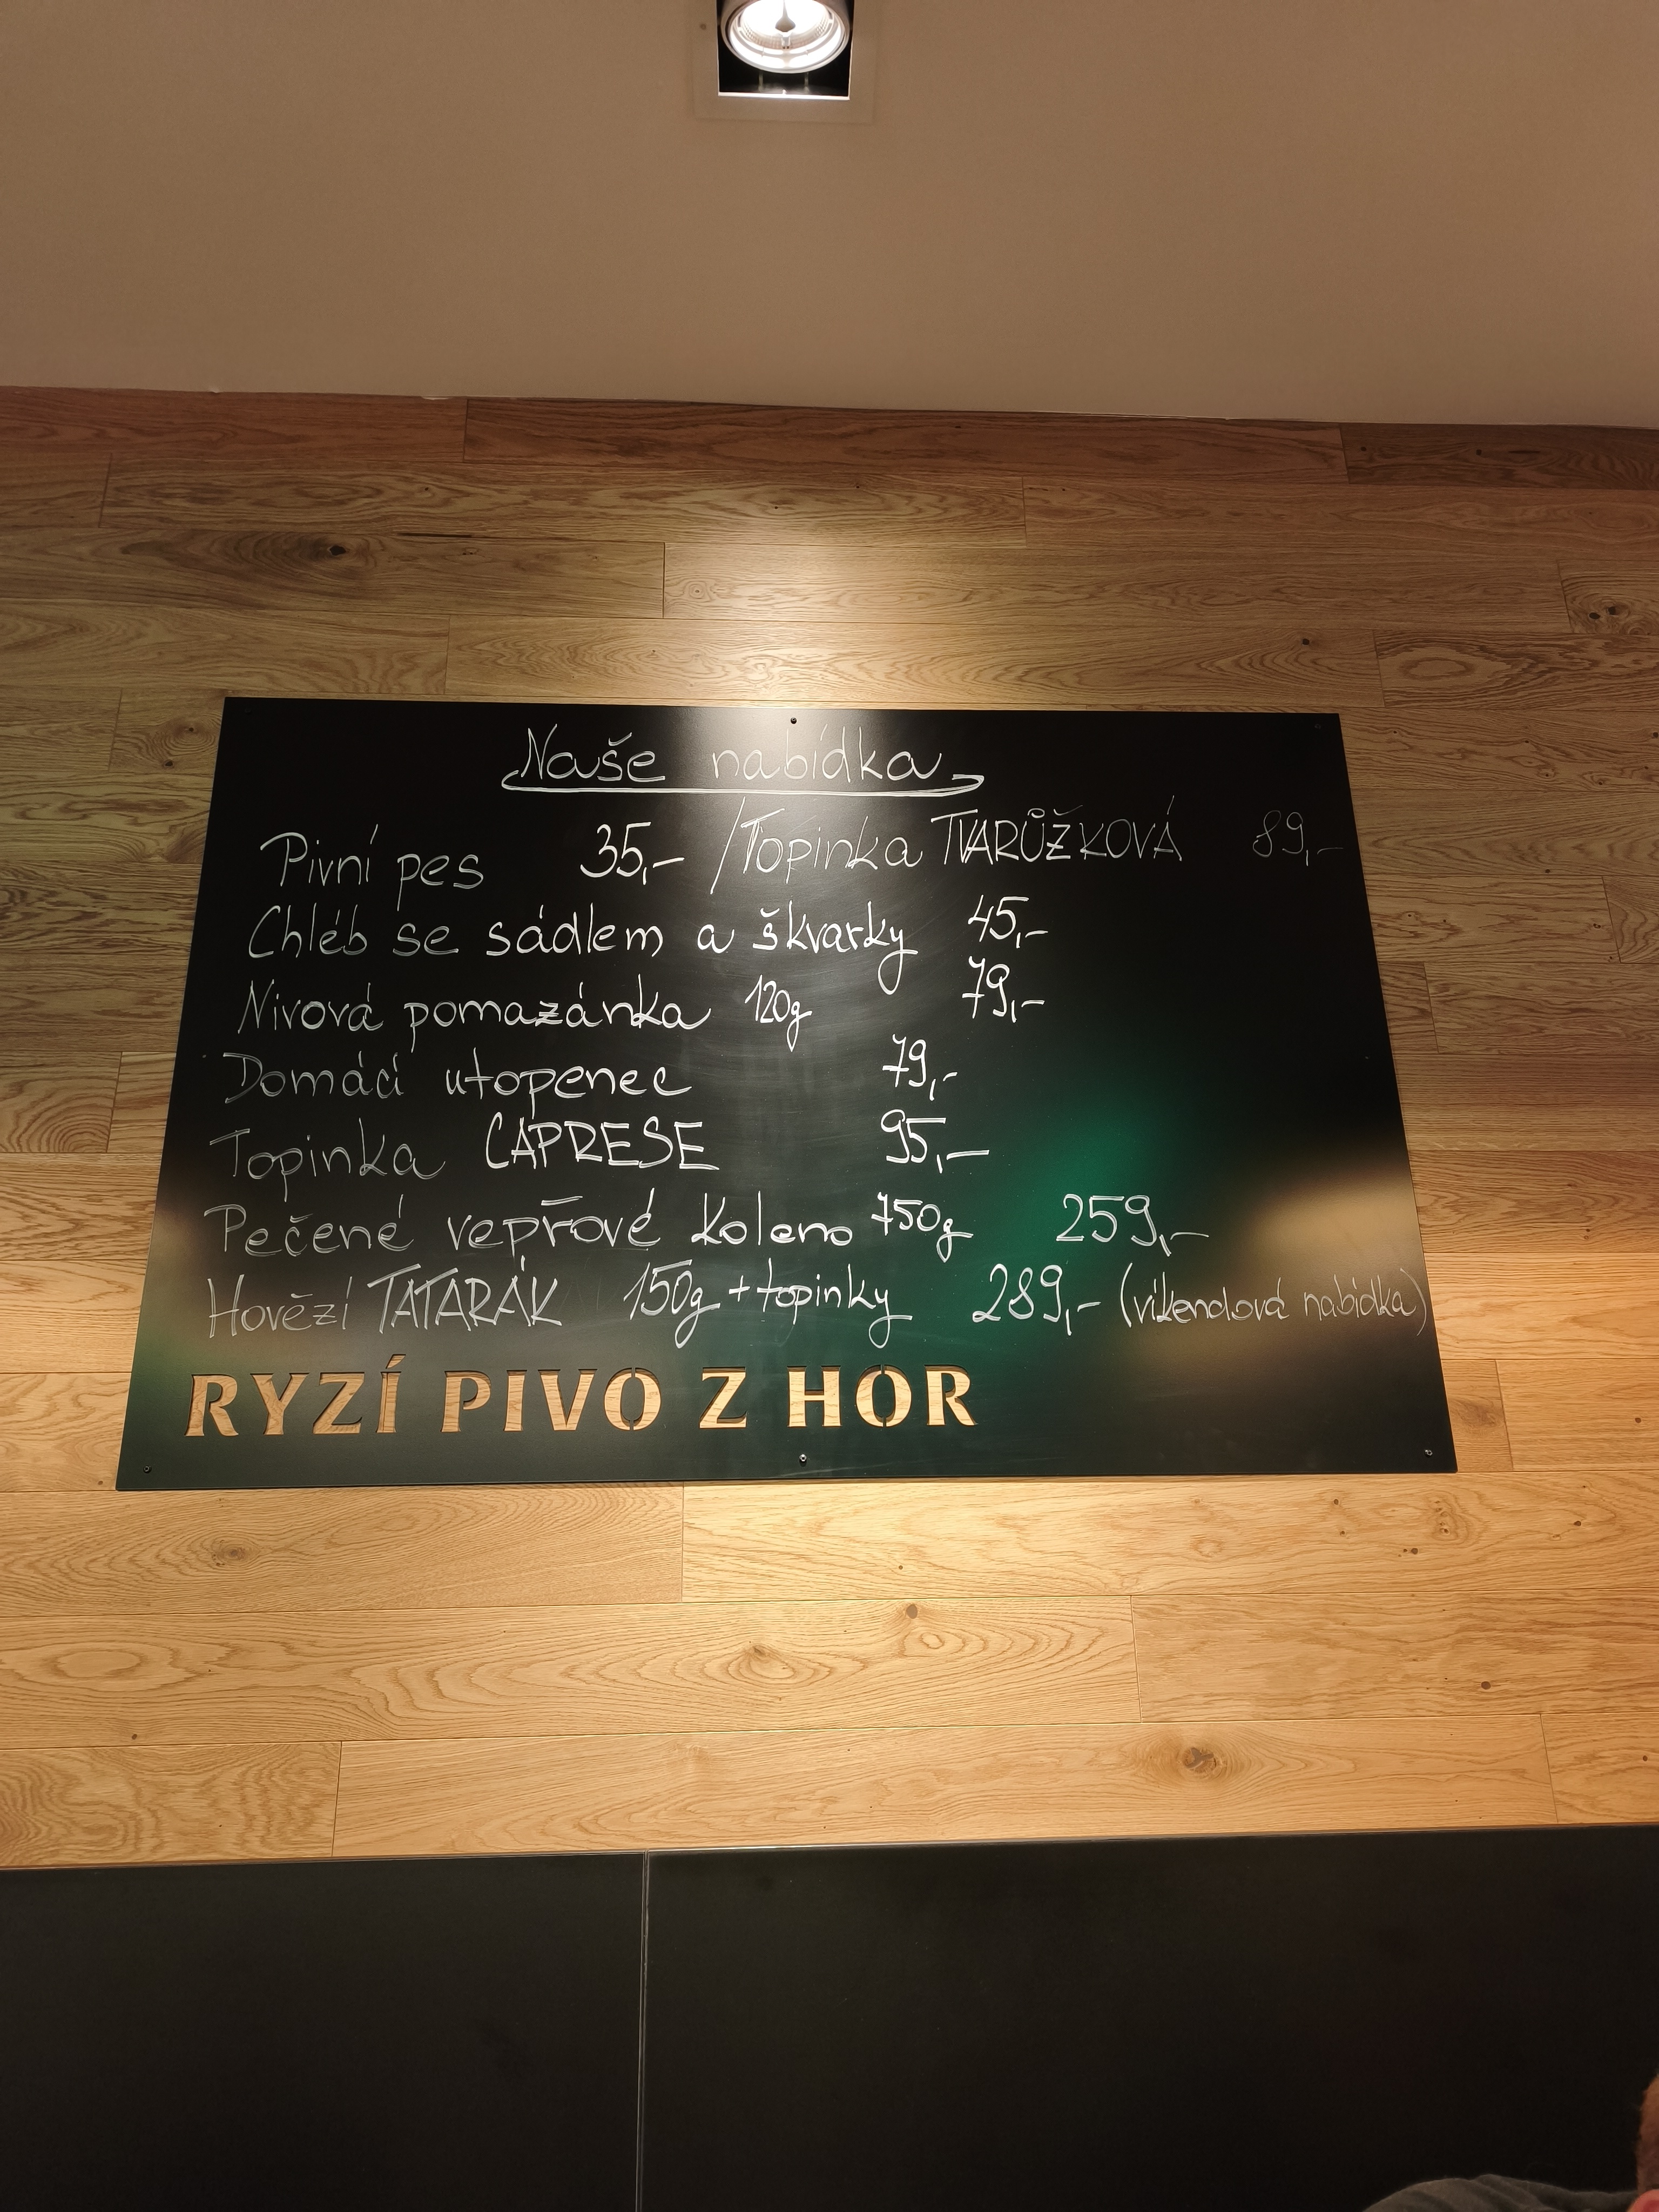 Naše nabídka
Pivní pes 35,- /Topinka TVARŮŽKOVÁ 89,-
Chléb se sádlem a škvarky 45,-
Nivová pomazánka 120g 79,-
Domácí utopenec 79,-
Topinka CAPRESE 95,-
Pečené vepřové koleno 750g 259,-
Hovězí TATARÁK 150g + topinky 289,- (víkendová nabídka)
RYZÍ PIVO Z HOR